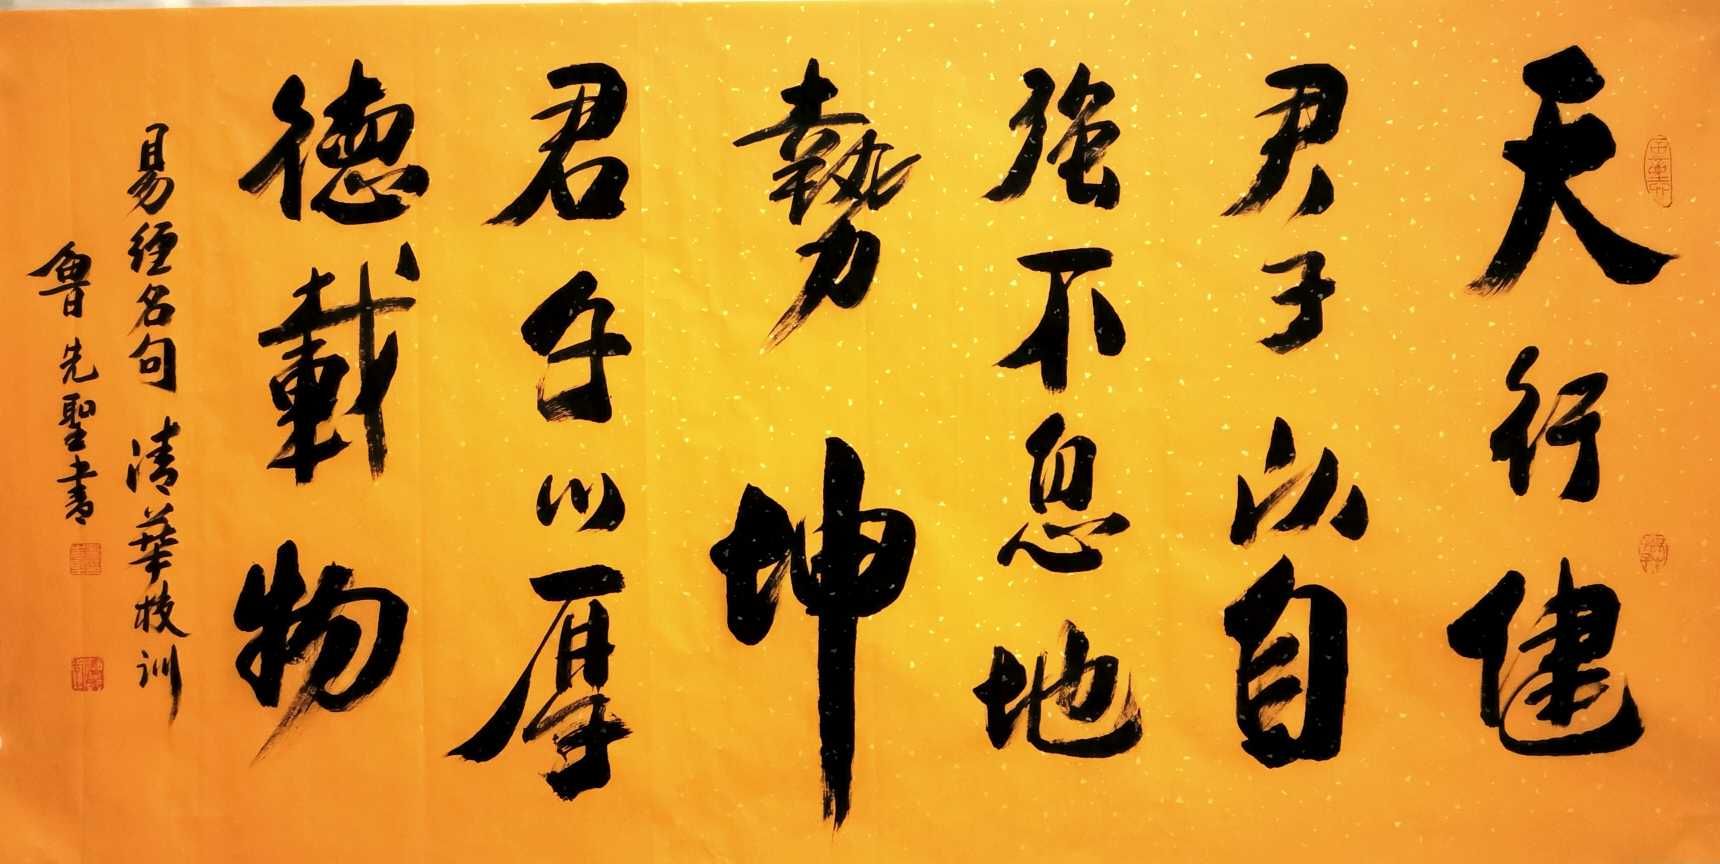 天行健
君子以自
強不息地
勢坤
君子以厚
德載物
易經名句 清華校訓
魯先聖書